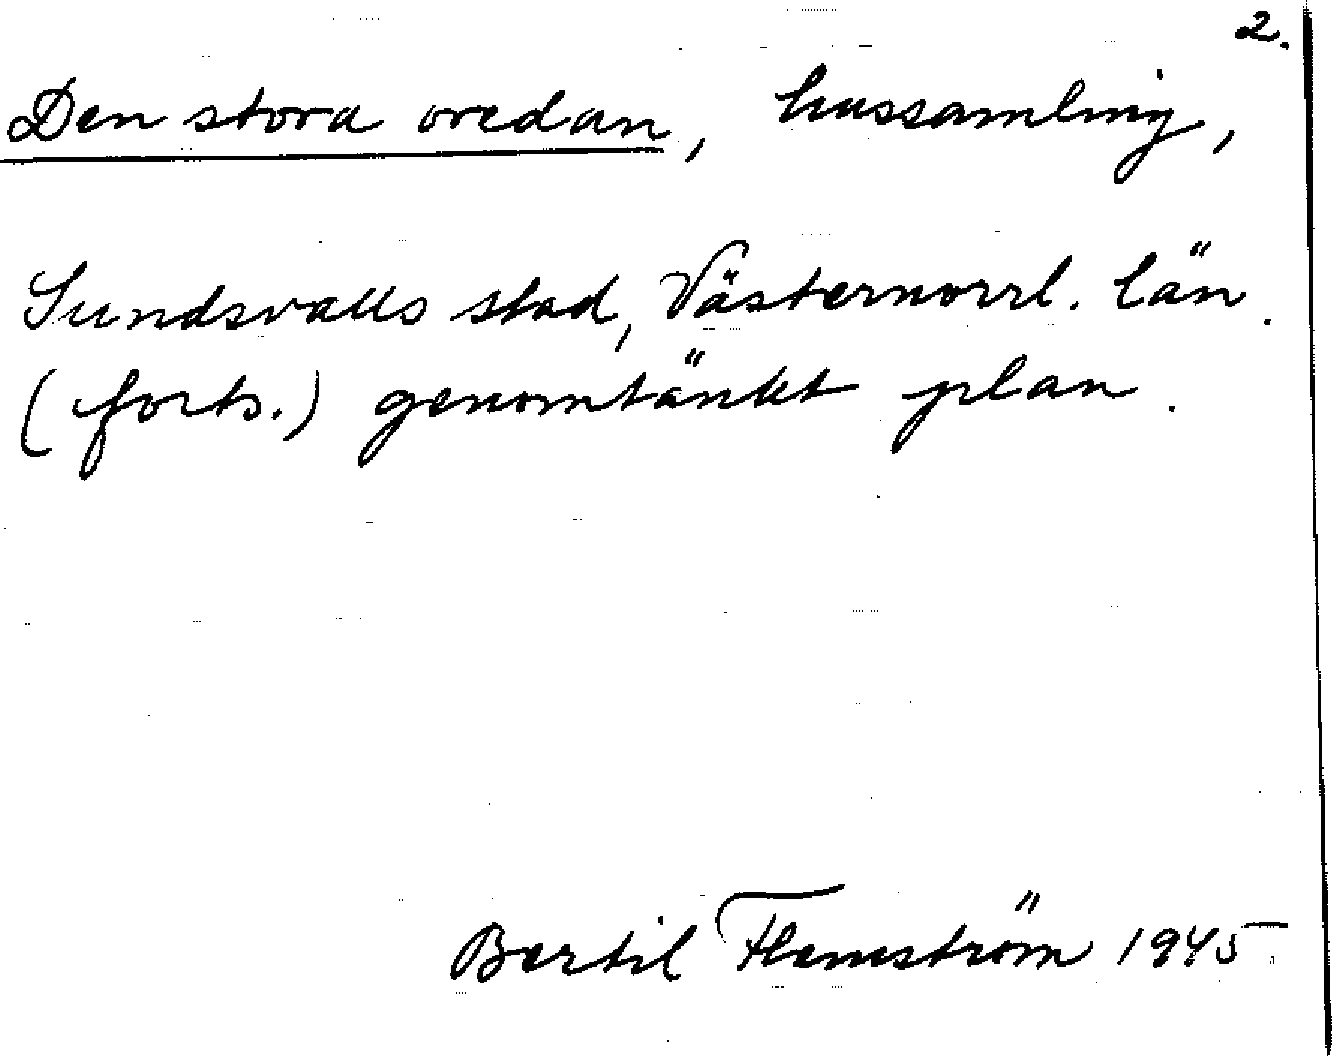 2.
Den stora oredan, hussamling,
Sundsvalls stad, Västernorrl. län.
(forts.) genomtänkt plan.
Bertil Flemström 1945